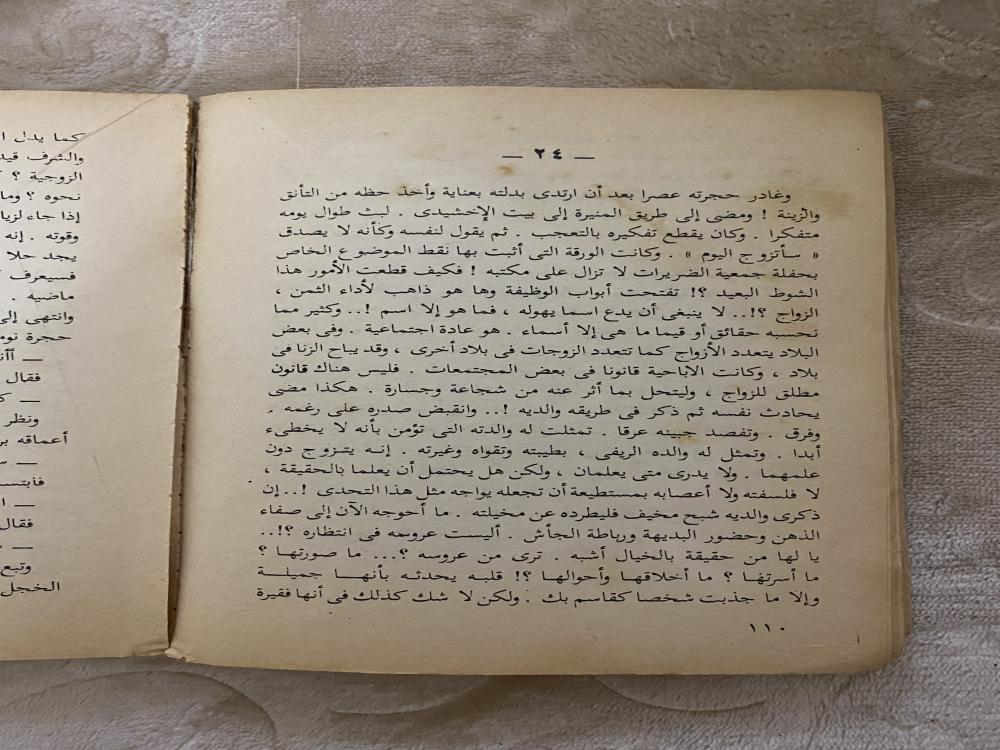 — ٢٤ —
وغادر حجرته عصرا بعد أن ارتدى بدلته بعناية وأخذ حظه من التأنق
والزينة ! ومضى إلى طريق المنيرة إلى بيت الإخشيدى . لبث طوال يومه
متفكرا . وكان يقطع تفكيره بالتعجب . ثم يقول لنفسه وكأنه لا يصدق
« سأتزوج اليوم » . وكانت الورقة التى أثبت بها نقط الموضوع الخاص
بحفلة جمعية الضريرات لا تزال على مكتبه ! فكيف قطعت الأمور هذا
الشوط البعيد ؟! تفتحت أبواب الوظيفة وها هو ذاهب لأداء الثمن ،
الزواج ؟!.. لا ينبغى أن يدع اسما يهوله ، فما هو إلا اسم !.. وكثير مما
نحسبه حقائق أو قيما ما هى إلا أسماء . هو عادة اجتماعية . وفى بعض
البلاد يتعدد الأزواج كما تتعدد الزوجات فى بلاد أخرى ، وقد يباح الزنا فى
بلاد ، وكانت الاباحية قانونا فى بعض المجتمعات . فليس هناك قانون
مطلق للزواج ، وليتحل بما أثر عنه من شجاعة وجسارة . هكذا مضى
يحادث نفسه ثم ذكر فى طريقه والديه !.. وانقبض صدره على رغمه .
وفرق . وتفصد جبينه عرقا . تمثلت له والدته التى تؤمن بأنه لا يخطىء
أبدا . وتمثل له والده الريفى ، بطيبته وتقواه وغيرته . إنه يتزوج دون
علمهما . ولا يدرى متى يعلمان ، ولكن هل يحتمل أن يعلما بالحقيقة ،
لا فلسفته ولا أعصابه بمستطيعة أن تجعله يواجه مثل هذا التحدى !.. إن
ذكرى والديه شبح مخيف فليطرده عن مخيلته . ما أحوجه الآن إلى صفاء
الذهن وحضور البديهة ورباطة الجأش . أليست عروسه فى انتظاره ؟!..
يا لها من حقيقة بالخيال أشبه . ترى من عروسه ؟... ما صورتها ؟
ما أسرتها ؟ ما أخلاقها وأحوالها ؟! قلبه يحدثه بأنها جميلة
وإلا ما جذبت شخصا كقاسم بك . ولكن لا شك كذلك فى أنها فقيرة
١١٠
كما يدل
والشرف
الزوجية ؟
نحوه ؟ وما
إذا جاء
وقوته . إنه
يجد حلا
فسيعرف
ماضيه .
وانتهى إلى
حجرة
—
فقال
—
ونظر
أعماقه
—
—
فقال
—
الخجل